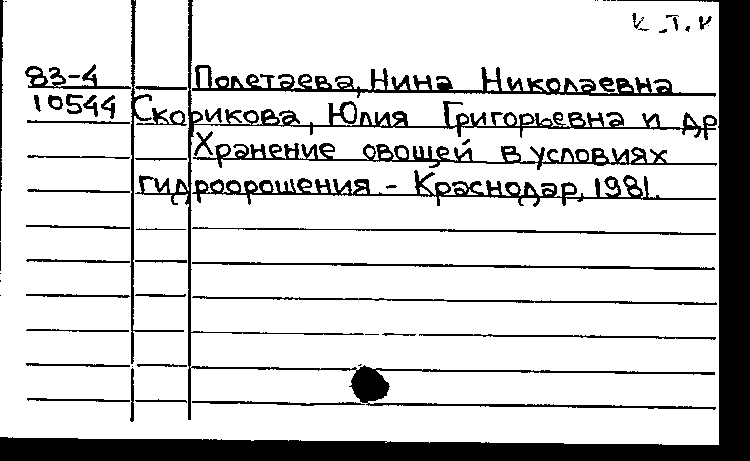 К.Т.К
83-4 Полетаева, Нина Николаевна
10544 Скорикова, Юлия Григорьевна и др
Хранение овощей в условиях
гидроорошения. - Краснодар, 1981.